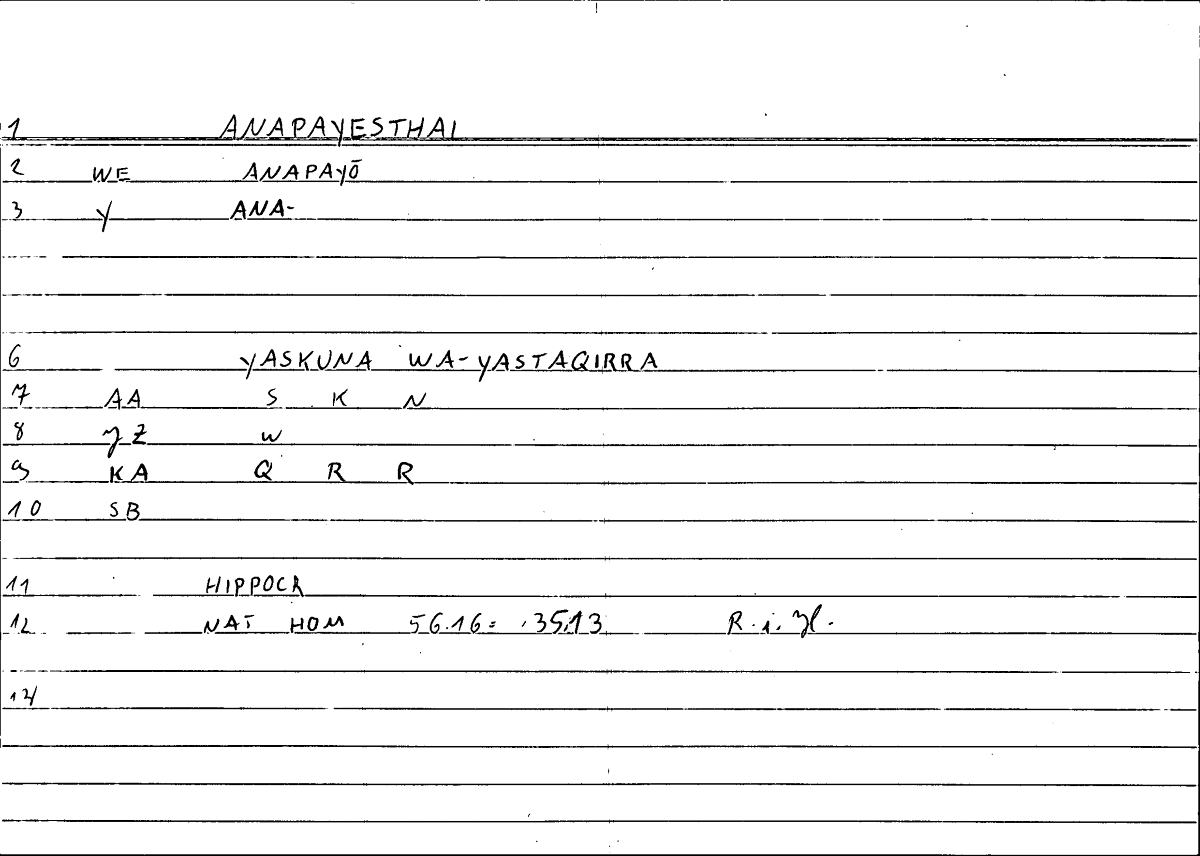 1 ANAPAYESTHAI
2 WE ANAPAYŌ
3 Y ANA-
6 YASKUNA WA-YASTAQIRRA
7 AA S K N
8 ZZ W
9 KA Q R R
10 SB
11 HIPPOCR
12 NAT HOM 56.16= 35,13
14